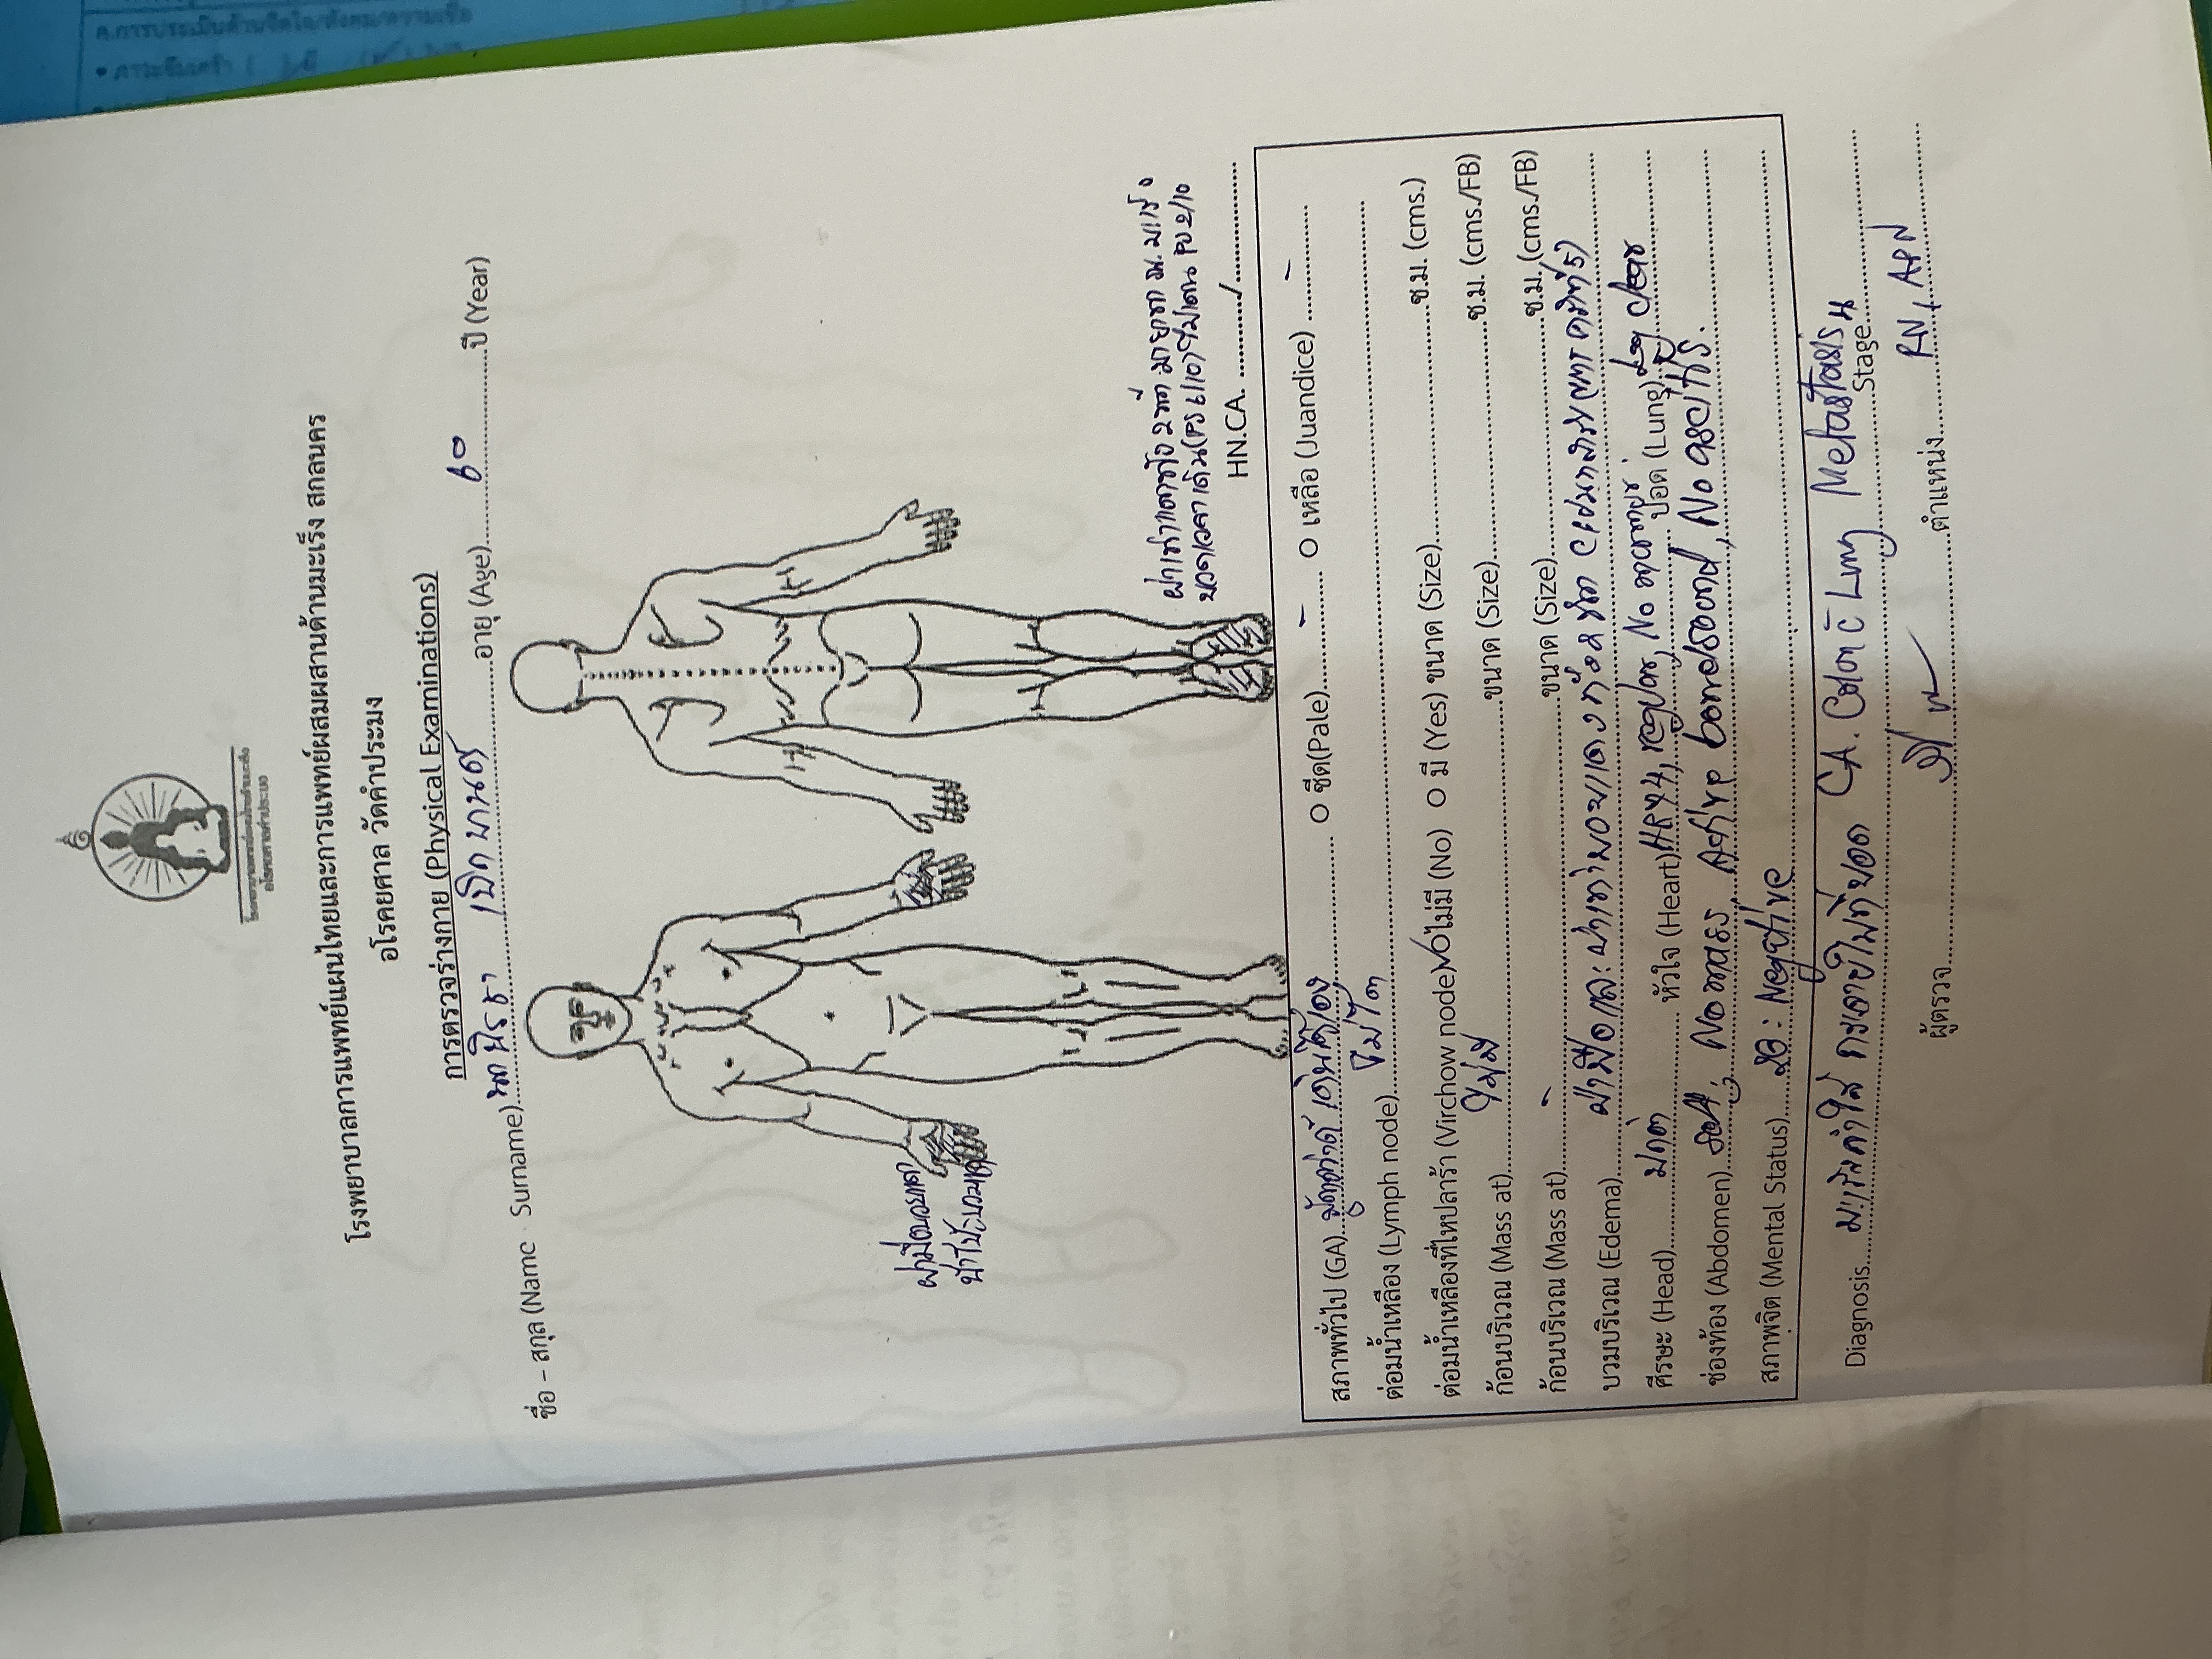 ค.การประเมินด้านจิตใจ/สังคม/ความเชื่อ
• ภาวะซึมเศร้า ( ) มี
โรงพยาบาลการแพทย์แผนไทยและการแพทย์ผสมผสานด้านมะเร็ง สกลนคร
อโรคยศาล วัดคำประมง
การตรวจร่างกาย (Physical Examinations)
ชื่อ – สกุล (Name - Surname) อายุ (Age) 60 ปี (Year)
ฝ่ามือบวมแดง
ฝ่าเท้าแตกทั้ง 2 ที่
ปวดเวลาเดิน (PS 6/10) PS 2/10
HN.CA. ............/............
สภาพทั่วไป (GA) เดินได้เอง O ซีด(Pale) - O เหลือ (Juandice) -
ต่อมน้ำเหลือง (Lymph node) ไม่โต
ต่อมน้ำเหลืองที่ไหปลาร้า (Virchow node) ✓O ไม่มี (No) O มี (Yes) ขนาด (Size) ซ.ม. (cms.)
ก้อนบริเวณ (Mass at) ไม่มี ขนาด (Size) ซ.ม. (cms./FB)
ก้อนบริเวณ (Mass at) - ขนาด (Size) ซ.ม. (cms./FB)
บวมบริเวณ (Edema) ฝ่ามือและฝ่าเท้าบวมแดง
ศีรษะ (Head) ปกติ หัวใจ (Heart) regular, No ปอด (Lung) Lung clear
ช่องท้อง (Abdomen) soft, No mass, Active bowel sound, No ascites.
สภาพจิต (Mental Status) 2Q : Negative
Diagnosis มะเร็งลำไส้ กระจายไปที่ปอด CA. Colon c̄ Lung Metastasis Stage
ผู้ตรวจ ตำแหน่ง RN, APN